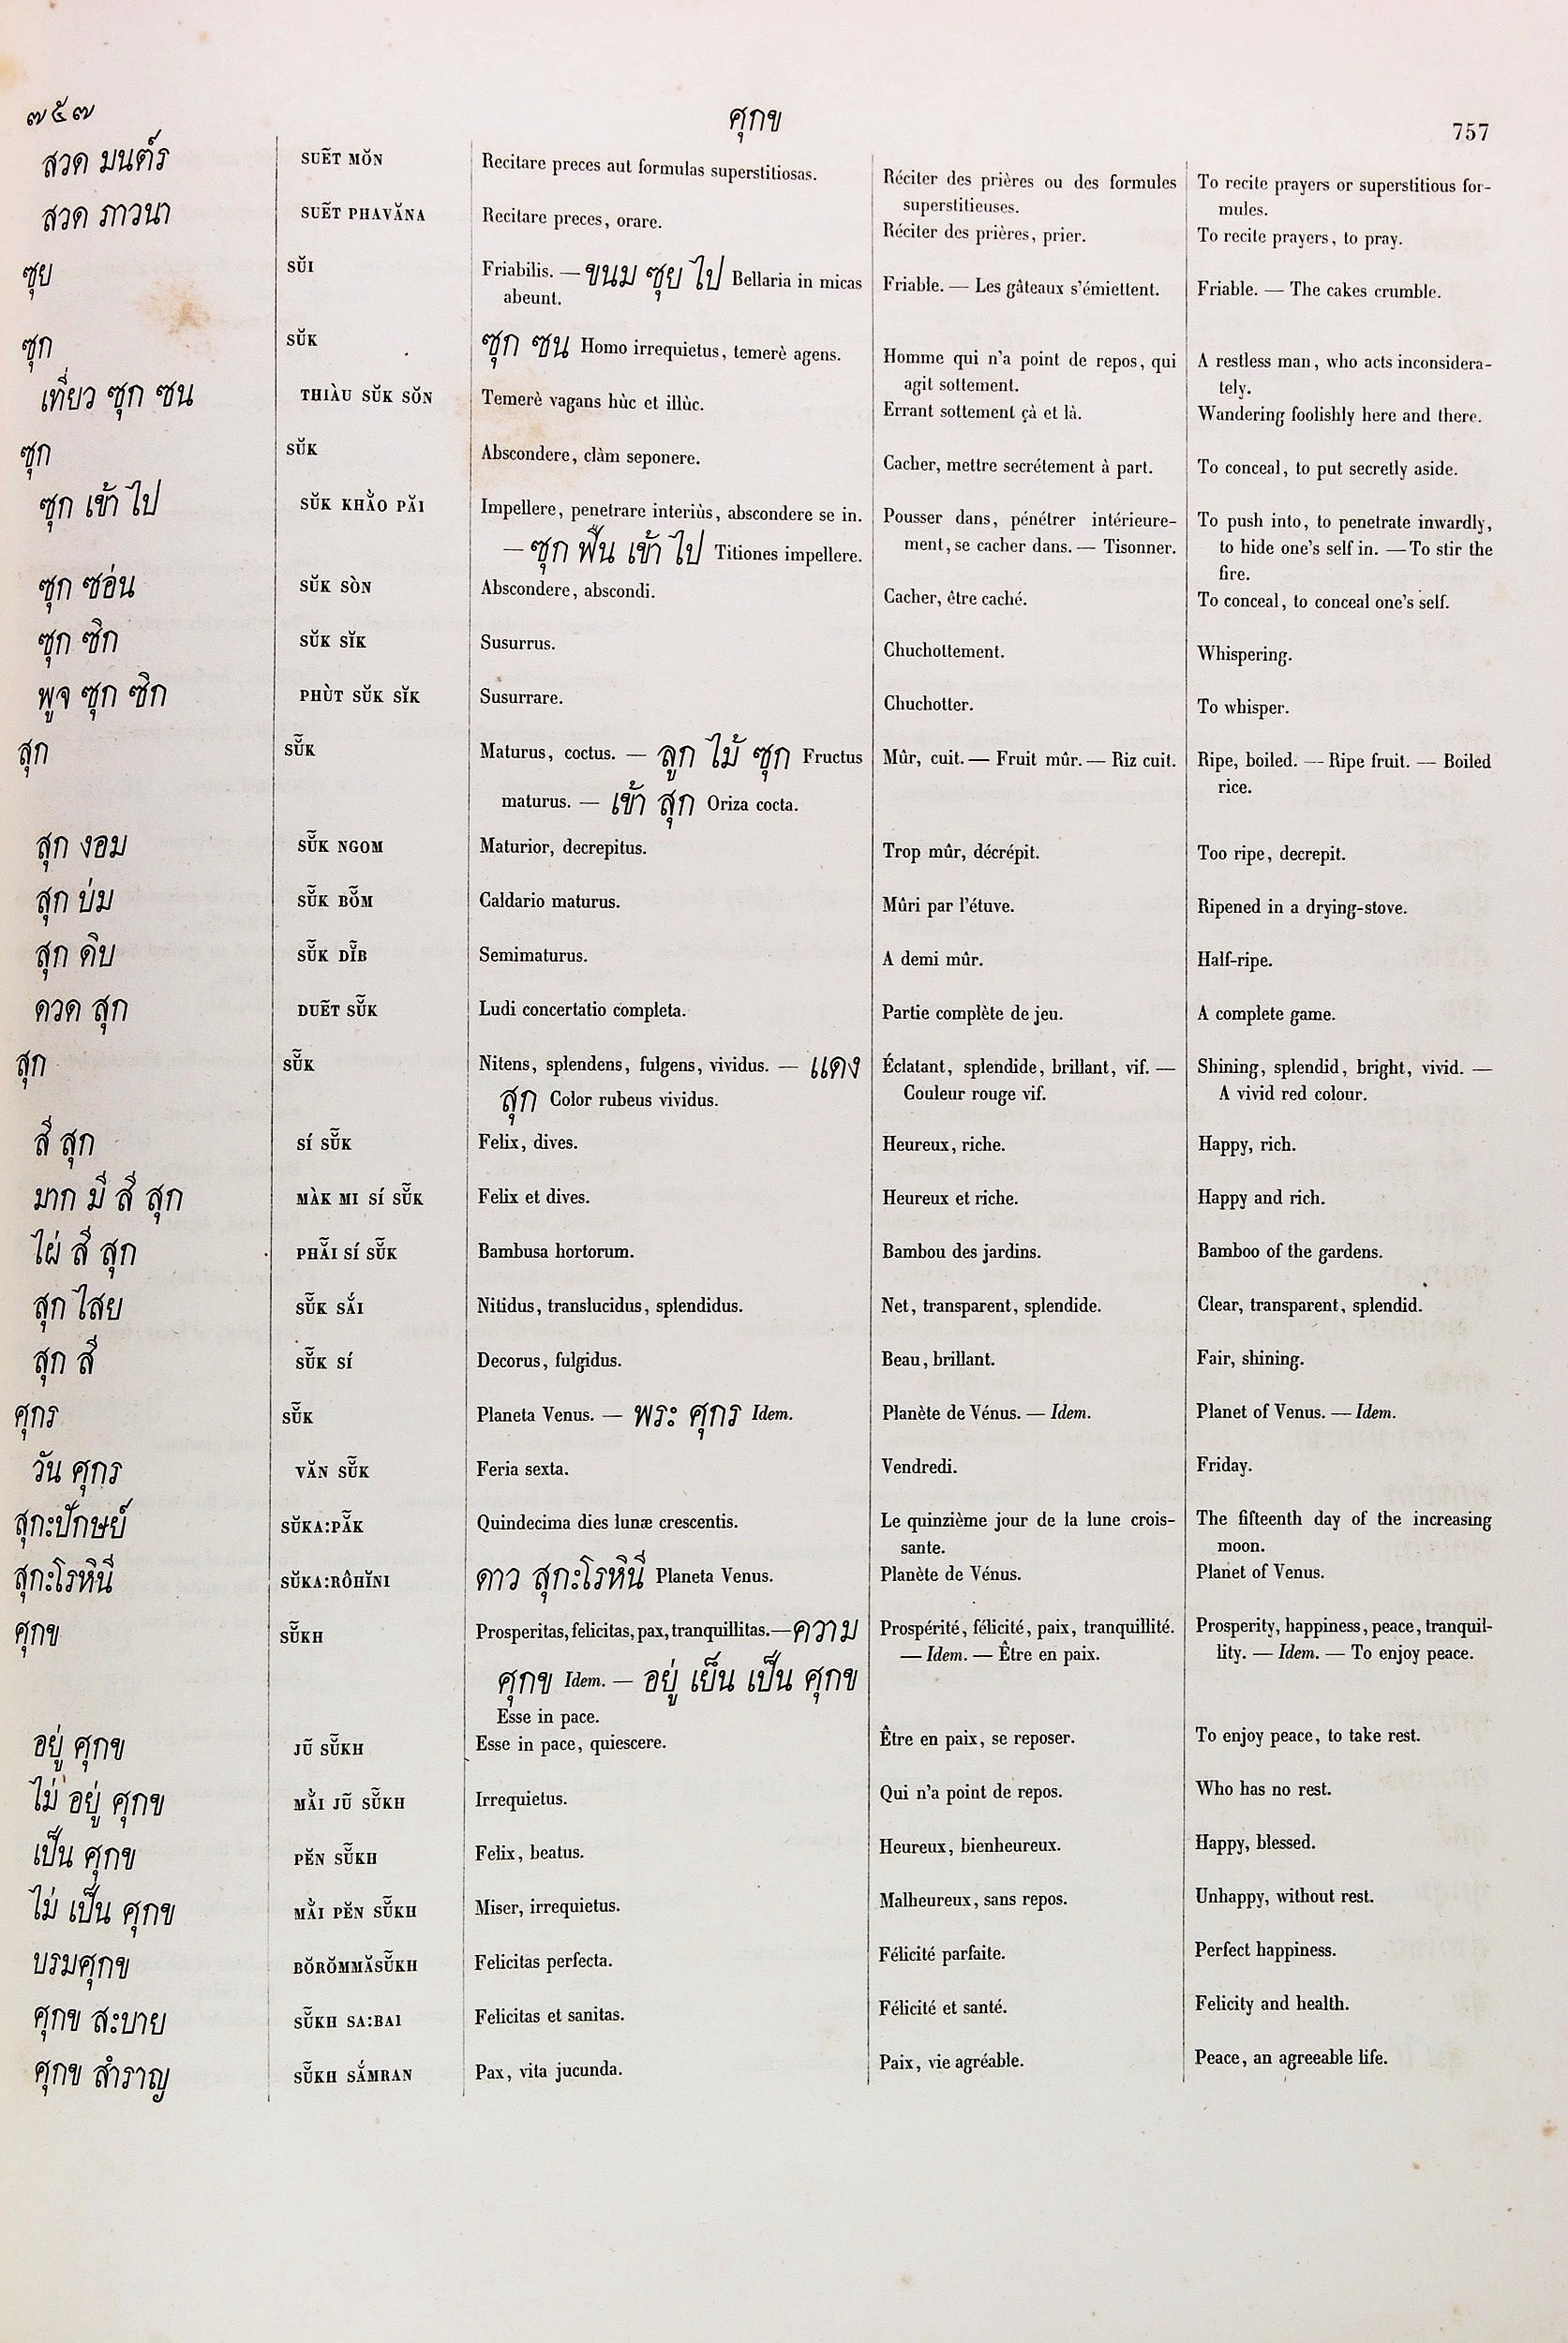 ๗๕๗ ศุกข 757
สวด มนต์ร SUE᷃T MŎN Recitare preces aut formulas superstitiosas. Réciter des prières ou des formules To recite prayers or superstitious for-
superstitieuses. mules.
สวด ภาวนา SUE᷃T PHAVĂNA Recitare preces, orare. Réciter des prières, prier. To recite prayers, to pray.
ซุย SŬI Friabilis. — ขนม ซุย ไป Bellaria in micas Friable. — Les gâteaux s'émiettent. Friable. — The cakes crumble.
abeunt.
ซุก SŬK ซุก ซน Homo irrequietus, temerè agens. Homme qui n'a point de repos, qui A restless man, who acts inconsidera-
agit sottement. tely.
เที่ยว ซุก ซน THIÀU SŬK SŎN Temerè vagans hùc et illùc. Errant sottement çà et là. Wandering foolishly here and there.
ซุก SŬK Abscondere, clàm seponere. Cacher, mettre secrétement à part. To conceal, to put secretly aside.
ซุก เข้า ไป SŬK KHẢO PĂI Impellere, penetrare interiùs, abscondere se in. Pousser dans, pénétrer intérieure- To push into, to penetrate inwardly,
— ซุก ฟืน เข้า ไป Titiones impellere. ment, se cacher dans. — Tisonner. to hide one's self in. — To stir the
fire.
ซุก ซ่อน SŬK SÒN Abscondere, abscondi. Cacher, être caché. To conceal, to conceal one's self.
ซุก ซิก SŬK SĬK Susurrus. Chuchottement. Whispering.
พูจ ซุก ซิก PHÙT SŬK SĬK Susurrare. Chuchotter. To whisper.
สุก SŬ̃K Maturus, coctus. — ลูก ไม้ ซุก Fructus Mûr, cuit. — Fruit mûr. — Riz cuit. Ripe, boiled. — Ripe fruit. — Boiled
maturus. — เข้า สุก Oriza cocta. rice.
สุก งอม SŬ̃K NGOM Maturior, decrepitus. Trop mûr, décrépit. Too ripe, decrepit.
สุก บ่ม SŬ̃K BŎ̃M Caldario maturus. Mûri par l'étuve. Ripened in a drying-stove.
สุก ดิบ SŬ̃K DĬ̃B Semimaturus. A demi mûr. Half-ripe.
ดวด สุก DUE᷃T SŬ̃K Ludi concertatio completa. Partie complète de jeu. A complete game.
สุก SŬ̃K Nitens, splendens, fulgens, vividus. — แดง Éclatant, splendide, brillant, vif. — Shining, splendid, bright, vivid. —
สุก Color rubeus vividus. Couleur rouge vif. A vivid red colour.
สี สุก SÍ SŬ̃K Felix, dives. Heureux, riche. Happy, rich.
มาก มี สี สุก MÀK MI SÍ SŬ̃K Felix et dives. Heureux et riche. Happy and rich.
ไผ่ สี สุก PHẴI SÍ SŬ̃K Bambusa hortorum. Bambou des jardins. Bamboo of the gardens.
สุก ไสย SŬ̃K SẮI Nitidus, translucidus, splendidus. Net, transparent, splendide. Clear, transparent, splendid.
สุก สี SŬ̃K SÍ Decorus, fulgidus. Beau, brillant. Fair, shining.
ศุกร SŬ̃K Planeta Venus. — พระ ศุกร Idem. Planète de Vénus. — Idem. Planet of Venus. — Idem.
วัน ศุกร VĂN SŬ̃K Feria sexta. Vendredi. Friday.
สุกะปักษย์ SŬKA:PẴK Quindecima dies lunæ crescentis. Le quinzième jour de la lune crois- The fifteenth day of the increasing
sante. moon.
สุกะโรหินี SŬKA:RÔHĬNI ดาว สุกะโรหินี Planeta Venus. Planète de Vénus. Planet of Venus.
ศุกข SŬ̃KH Prosperitas, felicitas, pax, tranquillitas. — ความ Prospérité, félicité, paix, tranquillité. Prosperity, happiness, peace, tranquil-
ศุกข Idem. — อยู่ เย็น เป็น ศุกข — Idem. — Être en paix. lity. — Idem. — To enjoy peace.
Esse in pace.
อยู่ ศุกข JU᷃ SŬ̃KH Esse in pace, quiescere. Être en paix, se reposer. To enjoy peace, to take rest.
ไม่ อยู่ ศุกข MẰI JU᷃ SŬ̃KH Irrequietus. Qui n'a point de repos. Who has no rest.
เป็น ศุกข PĔN SŬ̃KH Felix, beatus. Heureux, bienheureux. Happy, blessed.
ไม่ เป็น ศุกข MẰI PĔN SŬ̃KH Miser, irrequietus. Malheureux, sans repos. Unhappy, without rest.
บรมศุกข BŎRŎMMĂSŬ̃KH Felicitas perfecta. Félicité parfaite. Perfect happiness.
ศุกข สะบาย SŬ̃KH SA:BAI Felicitas et sanitas. Félicité et santé. Felicity and health.
ศุกข สำราญ SŬ̃KH SẮMRAN Pax, vita jucunda. Paix, vie agréable. Peace, an agreeable life.